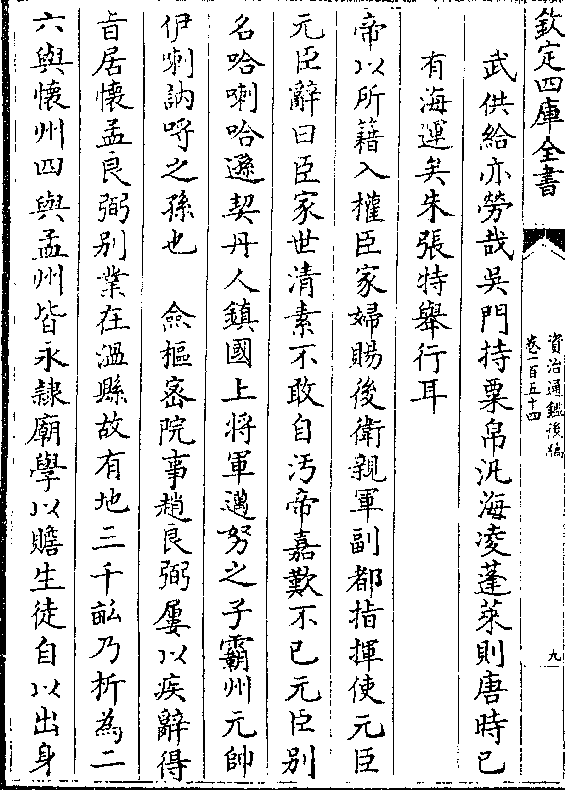 欽定四庫全書
資治通鑑後編
卷一百五十四
九
武供給亦勞哉吳門持粟帛汎海凌蓬萊則唐時已
有海運矣朱張特舉行耳
帝以所籍入權臣家婦賜後衛親軍副都指揮使元臣
元臣辭曰臣家世清素不敢自汚帝嘉歎不已元臣别
名哈喇哈遜契丹人鎮國上將軍邁努之子霸州元帥
伊喇訥呼之孫也　僉樞密院事趙良弼屢以疾辭得
㫖居懷孟良弼别業在溫縣故有地三千畝乃折為二
六與懷州四與孟州皆永隷廟學以贍生徒自以出身